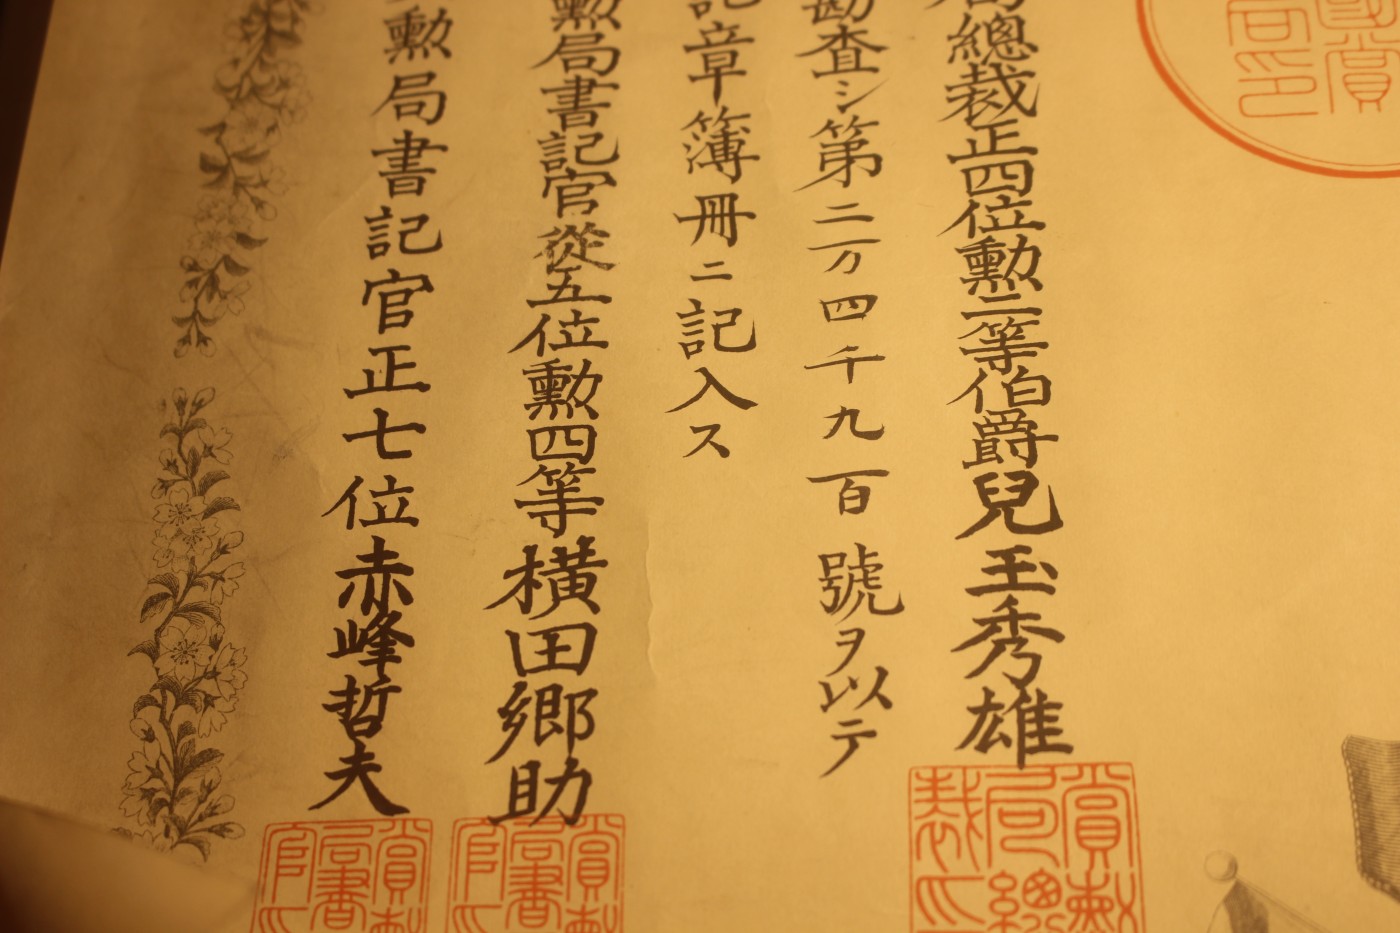 局總裁正四位勳二等伯爵兒玉秀雄
勘査シ第二万四千九百號ヲ以テ
記章簿冊ニ記入ス
勳局書記官從五位勳四等橫田郷助
勳局書記官正七位赤峰哲夫
賞勳
局總
裁印
賞勳
局書
官印